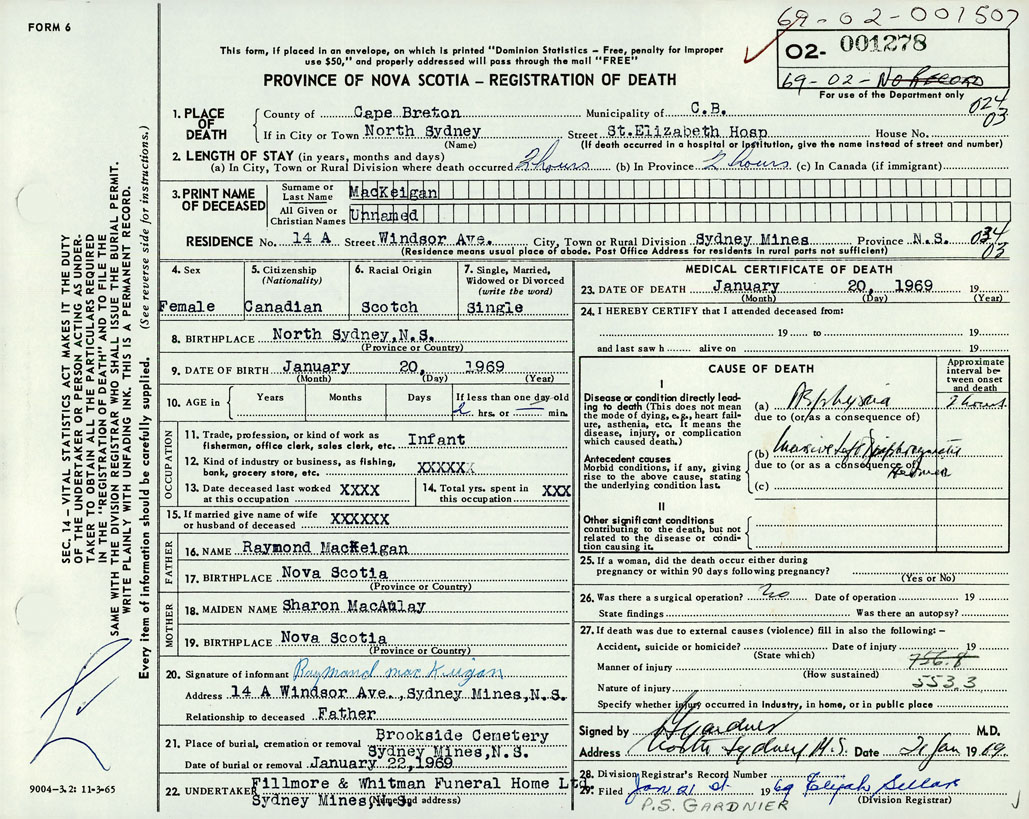 FORM 6
69-02-001507
02- 001278
69-02-No Record
For use of the Department only
This form, if placed in an envelope, on which is printed "Dominion Statistics – Free, penalty for improper
use $50," and properly addressed will pass through the mail "FREE"
PROVINCE OF NOVA SCOTIA – REGISTRATION OF DEATH
1. PLACE OF DEATH
County of Cape Breton Municipality of C.B. 024
03
If in City or Town North Sydney Street St.Elizabeth Hosp House No.
(Name) (If death occurred in a hospital or institution, give the name instead of street and number)
2. LENGTH OF STAY (in years, months and days)
(a) In City, Town or Rural Division where death occurred 2 hours (b) In Province 2 hours (c) In Canada (if immigrant)
3. PRINT NAME OF DECEASED
Surname or Last Name MacKeigan
All Given or Christian Names Unnamed
RESIDENCE No. 14 A Street Windsor Ave. City, Town or Rural Division Sydney Mines Province N.S. 034
03
(Residence means usual place of abode. Post Office Address for residents in rural parts not sufficient)
4. Sex
Female
5. Citizenship
(Nationality)
Canadian
6. Racial Origin
Scotch
7. Single, Married,
Widowed or Divorced
(write the word)
Single
8. BIRTHPLACE North Sydney,N.S.
(Province or Country)
9. DATE OF BIRTH January 20, 1969
(Month) (Day) (Year)
10. AGE in Years Months Days If less than one day old
2 hrs. or — min.
OCCUPATION
11. Trade, profession, or kind of work as
fisherman, office clerk, sales clerk, etc. Infant
12. Kind of industry or business, as fishing,
bank, grocery store, etc. XXXXXX
13. Date deceased last worked
at this occupation XXXX
14. Total yrs. spent in
this occupation XXX
15. If married give name of wife
or husband of deceased XXXXXX
FATHER
16. NAME Raymond MacKeigan
17. BIRTHPLACE Nova Scotia
(Province or Country)
MOTHER
18. MAIDEN NAME Sharon MacAulay
19. BIRTHPLACE Nova Scotia
(Province or Country)
20. Signature of informant Raymond MacKeigan
Address 14 A Windsor Ave.,Sydney Mines,N.S.
Relationship to deceased Father
21. Place of burial, cremation or removal Brookside Cemetery
Sydney Mines,N.S.
Date of burial or removal January 22,1969
22. UNDERTAKER Fillmore & Whitman Funeral Home Ltd
Sydney Mines,N.S.
(Name and address)
MEDICAL CERTIFICATE OF DEATH
23. DATE OF DEATH January 20, 1969 19
(Month) (Day) (Year)
24. I HEREBY CERTIFY that I attended deceased from:
19 to 19
and last saw h alive on 19
CAUSE OF DEATH
Approximate
interval be-
tween onset
and death
I
Disease or condition directly lead-
ing to death (This does not mean
the mode of dying, e.g., heart failure,
asthenia, etc. It means the
disease, injury, or complication
which caused death.)
(a) Asphyxia 2 hours
due to (or as a consequence of)
Antecedent causes
Morbid conditions, if any, giving
rise to the above cause, stating
the underlying condition last.
(b) Massive Left Diaphragmatic
due to (or as a consequence of) Hernia
(c)
II
Other significant conditions
contributing to the death, but not
related to the disease or condi-
tion causing it.
25. If a woman, did the death occur either during
pregnancy or within 90 days following pregnancy?
(Yes or No)
26. Was there a surgical operation? No Date of operation 19
State findings Was there an autopsy?
27. If death was due to external causes (violence) fill in also the following: –
Accident, suicide or homicide? Date of injury 19
(State which) 756.8
Manner of injury
(How sustained) 553.3
Nature of injury
Specify whether injury occurred in industry, in home, or in public place
Signed by P S Gardnier M.D.
Address North Sydney N.S. Date 21 Jan 1969
28. Division Registrar's Record Number
29. Filed Jan 21 st 1969
(Division Registrar)
P.S. GARDNIER
SEC. 14 – VITAL STATISTICS ACT MAKES IT THE DUTY
OF THE UNDERTAKER OR PERSON ACTING AS UNDER-
TAKER TO OBTAIN ALL THE PARTICULARS REQUIRED
IN THE "REGISTRATION OF DEATH" AND TO FILE THE
SAME WITH THE DIVISION REGISTRAR WHO SHALL ISSUE THE BURIAL PERMIT.
WRITE PLAINLY WITH UNFADING INK. THIS IS A PERMANENT RECORD.
Every item of information should be carefully supplied. (See reverse side for instructions.)
9004-3.2: 11-3-65